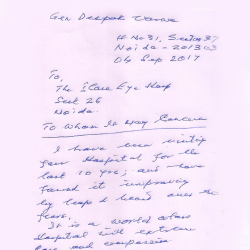 Gen Deepak
H. No 31, Sector 37
Noida - 201303
04 Sep 2017
To,
The ICare Eye Hosp
Sect 26
Noida.
To Whom It May Concern
I have been visiting
your Hospital for the
last 10 yrs; and have
found it improving
by leap & bound over the
years.
It is a world class
Hospital with extreme
care and compassion